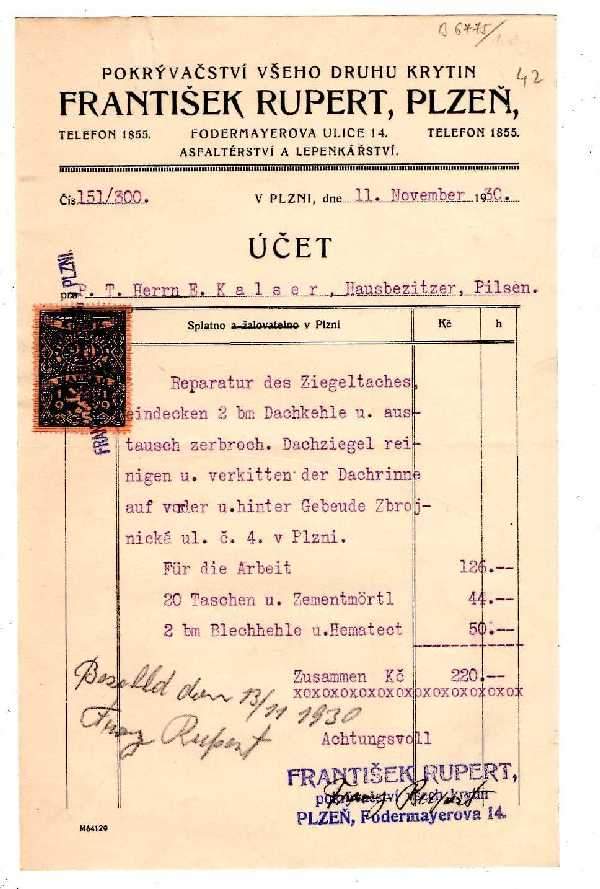 B 6775/
42
POKRÝVAČSTVÍ VŠEHO DRUHU KRYTIN
FRANTIŠEK RUPERT, PLZEŇ,
TELEFON 1855. FODERMAYEROVA ULICE 14. TELEFON 1855.
ASFALTÉRSTVÍ A LEPENKÁŘSTVÍ.
Čís 151/300. V PLZNI, dne 11. November 1930.
ÚČET
pro P. T. Herrn E. K a l s e r , Hausbezitzer, Pilsen.
Splatno a žalovatelno v Plzni Kč h
Reparatur des Ziegeltaches,
eindecken 2 bm Dachkehle u. aus-
tausch zerbroch. Dachziegel rei-
nigen u. verkitten der Dachrinne
auf voder u.hinter Gebeude Zbroj-
nická ul. č. 4. v Plzni.
Für die Arbeit 126.--
20 Taschen u. Zementmörtl 44.--
2 bm Blechhehle u.Hematect 50.--
Zusammen Kč 220.--
xoxoxoxoxoxoxoxoxoxoxoxox
Bezalld den 13/11 1930
Franz Rupert
Achtungsvoll
FRANTIŠEK RUPERT,
pokrývačství všeho krytin
Franz Rupert
PLZEŇ, Fodermayerova 14.
M64129